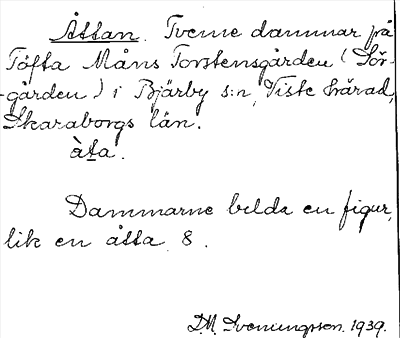 Åttan. Tvenne dammar på
Töfta Måns Torstensgården (Sör-
gården) i Bjärby s:n, Viste härad,
Skaraborgs län.
àt̲a.
Dammarne bilda en figur,
lik en åtta 8.
D.M. Sveningsson. 1939.